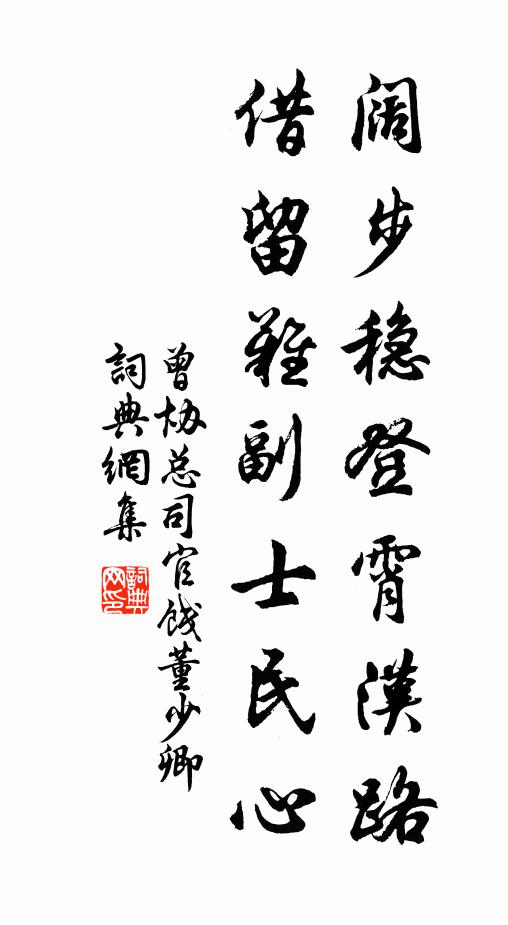 阔步稳登霄漢路
借留難副士民心
曾协总司官餞董少卿
詞典網集
詞典
网印